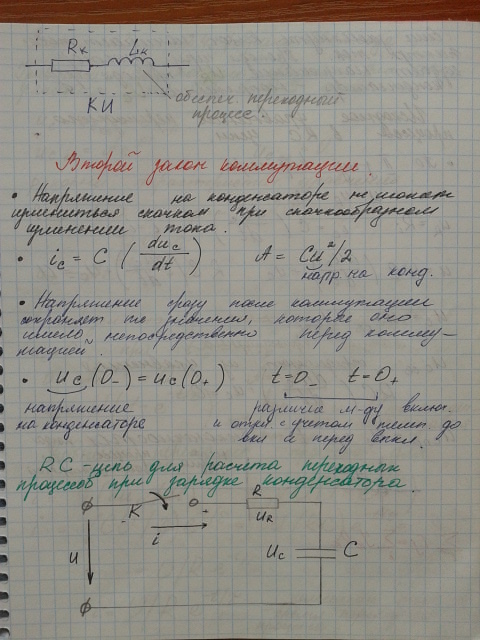 Rк Lк
КИ
обеспеч. переходный
процесс.
Второй закон коммутации.
• Напряжение на конденсаторе не может
измениться скачком при скачкообразном
изменении тока.
• ic = C (duc/dt) A = Cu²/2
напр. на конд.
• Напряжение сразу после коммутации
сохраняет то значение, которое оно
имело непосредственно перед комму-
тацией.
• uc(0-) = uc(0+) t=0- t=0+
напряжение различие м-ду включ.
на конденсаторе и откл. с учетом до
вкл и перед выкл.
RC-цепь для расчета переходных
процессов при зарядке конденсатора.
K R
i uR
u uc C